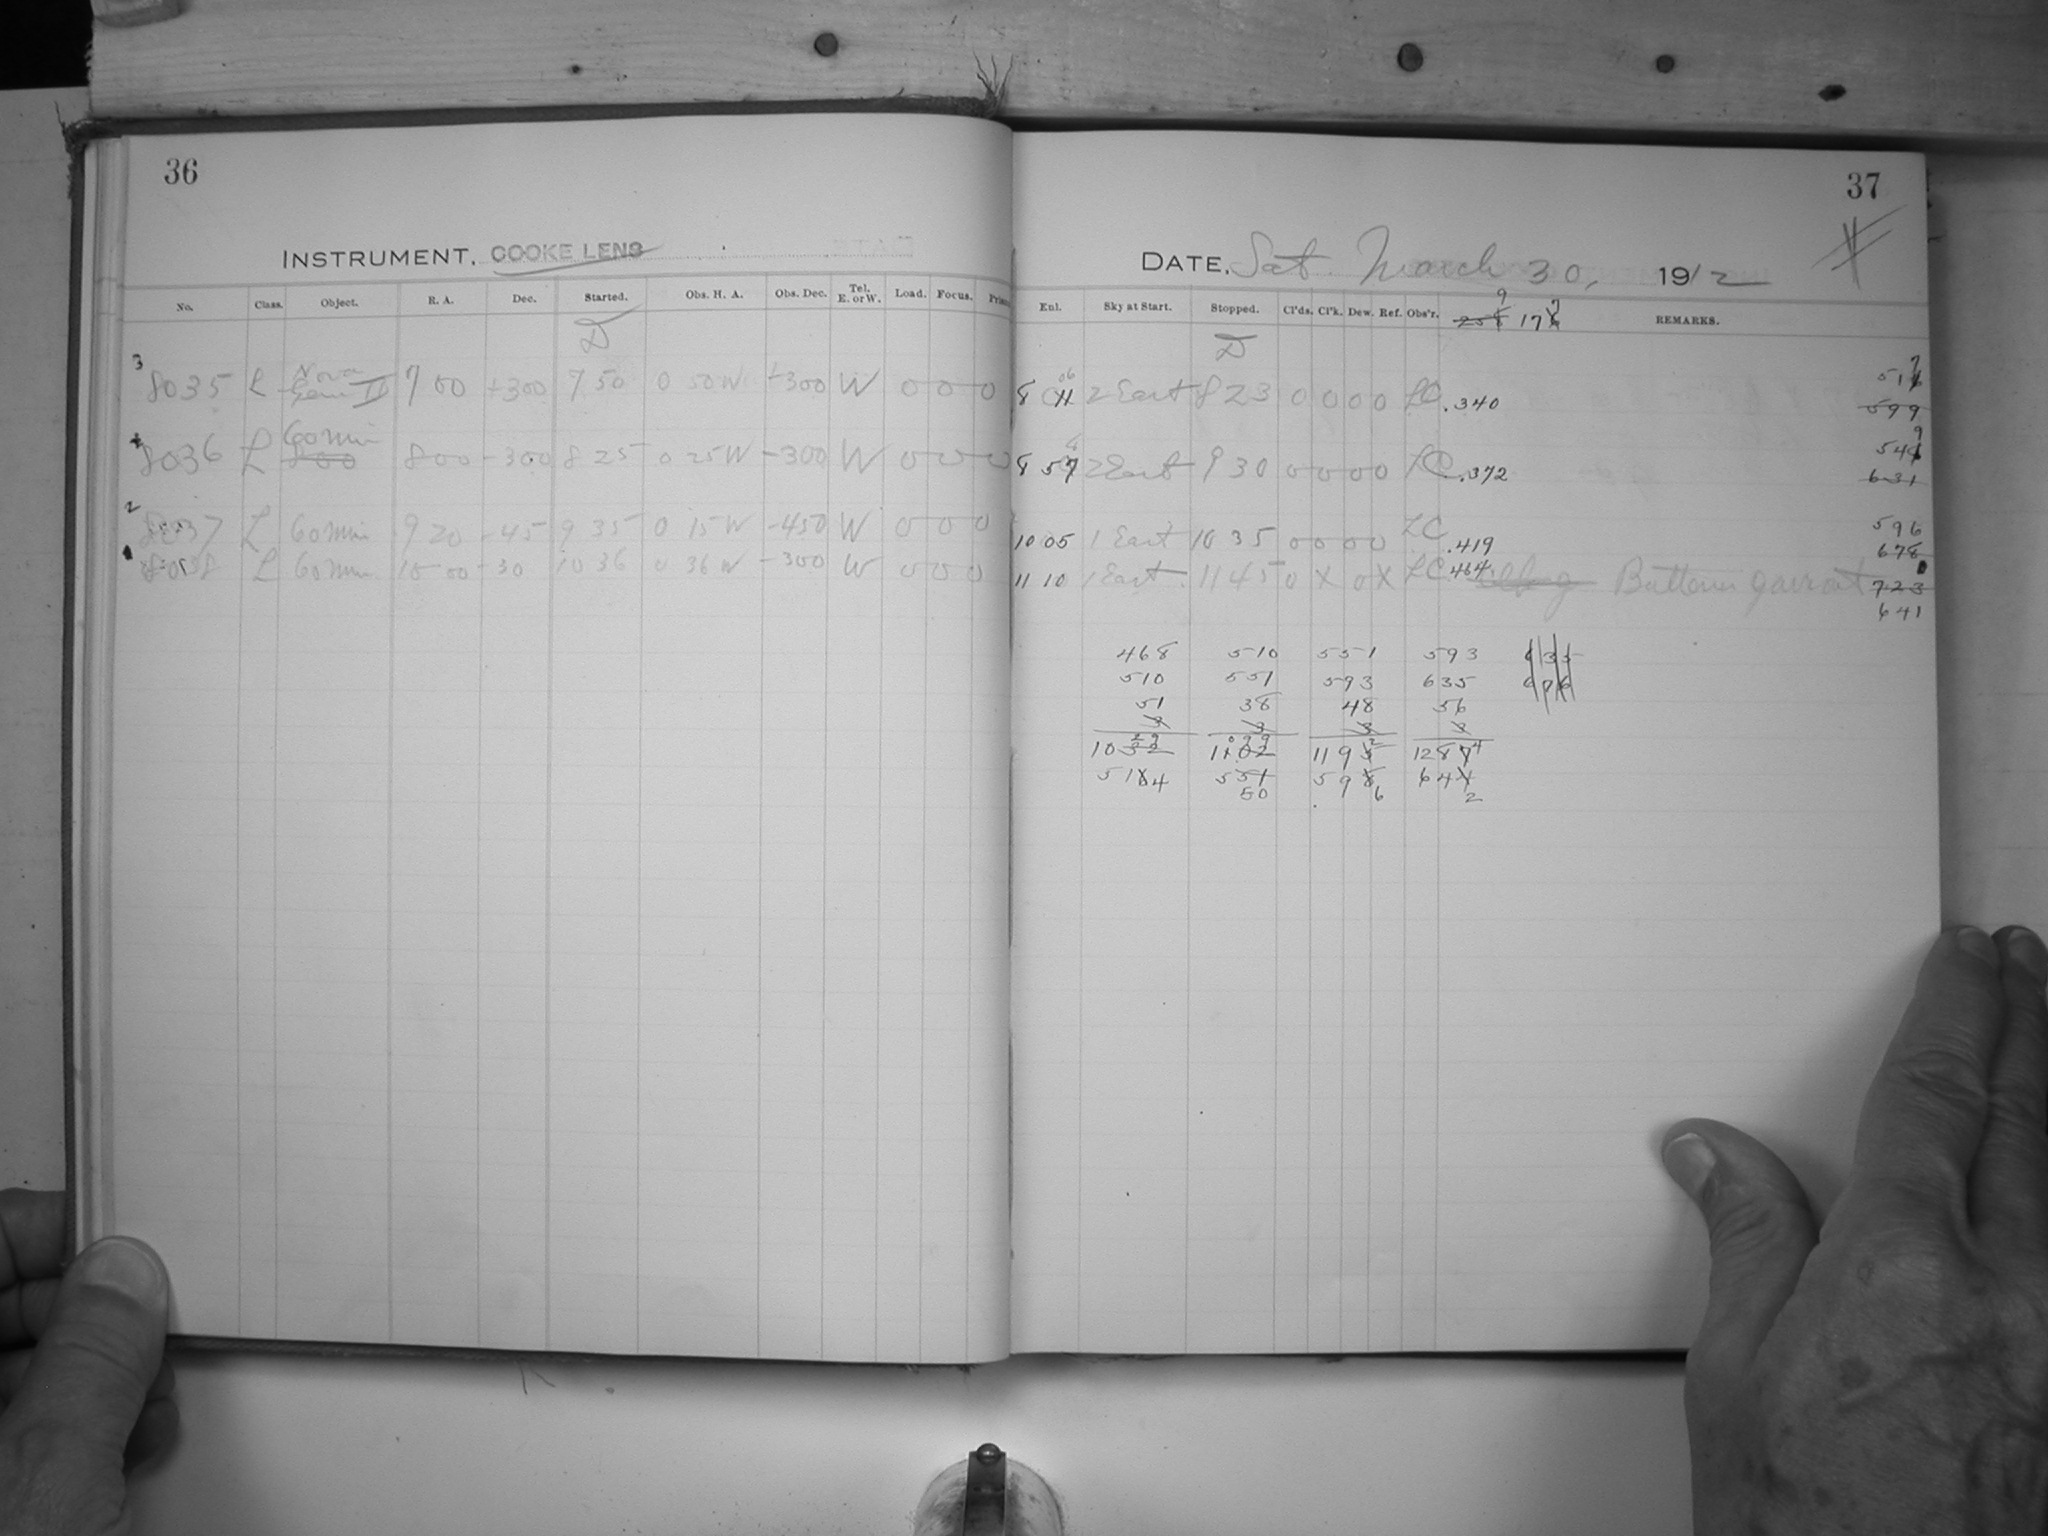 36
INSTRUMENT. COOKE LENS
No. Class. Object. R. A. Dec. Started. Obs. H. A. Obs. Dec. Tel. E. or W. Load. Focus.
D
3 8035 L Nova Gem II 7 00 +300 7 50 0 50 W +300 W 0 0 0
8036 L 60 min 800 800 -300 8 25 0 25 W -300 W 0 0 0
2 8037 L 60 min 9 20 -45 9 35 0 15 W -450 W 0 0 0
8038 L 60 min 10 00 -30 10 36 0 36 W -300 W 0 0 0
37
DATE. Sat. March 30, 1912
Enl. Sky at Start. Stopped. Cl'ds. Cl'k. Dew. Ref. Obs'r. 17 REMARKS.
D
8 06 2 East 8 23 0 0 0 0 LC .340 517
599
8 57 2 East 9 30 0 0 0 0 LC .372 549
631
10 05 1 East 10 35 0 0 0 0 LC .419 596
678
11 10 1 East 11 45 0 X 0 X LC .464 723
641
468 510 551 593 635
510 551 593 635 676
51 38 48 56
3 3 3 3
1032 1102 1195 1287
514 551 598 641
50 6 2